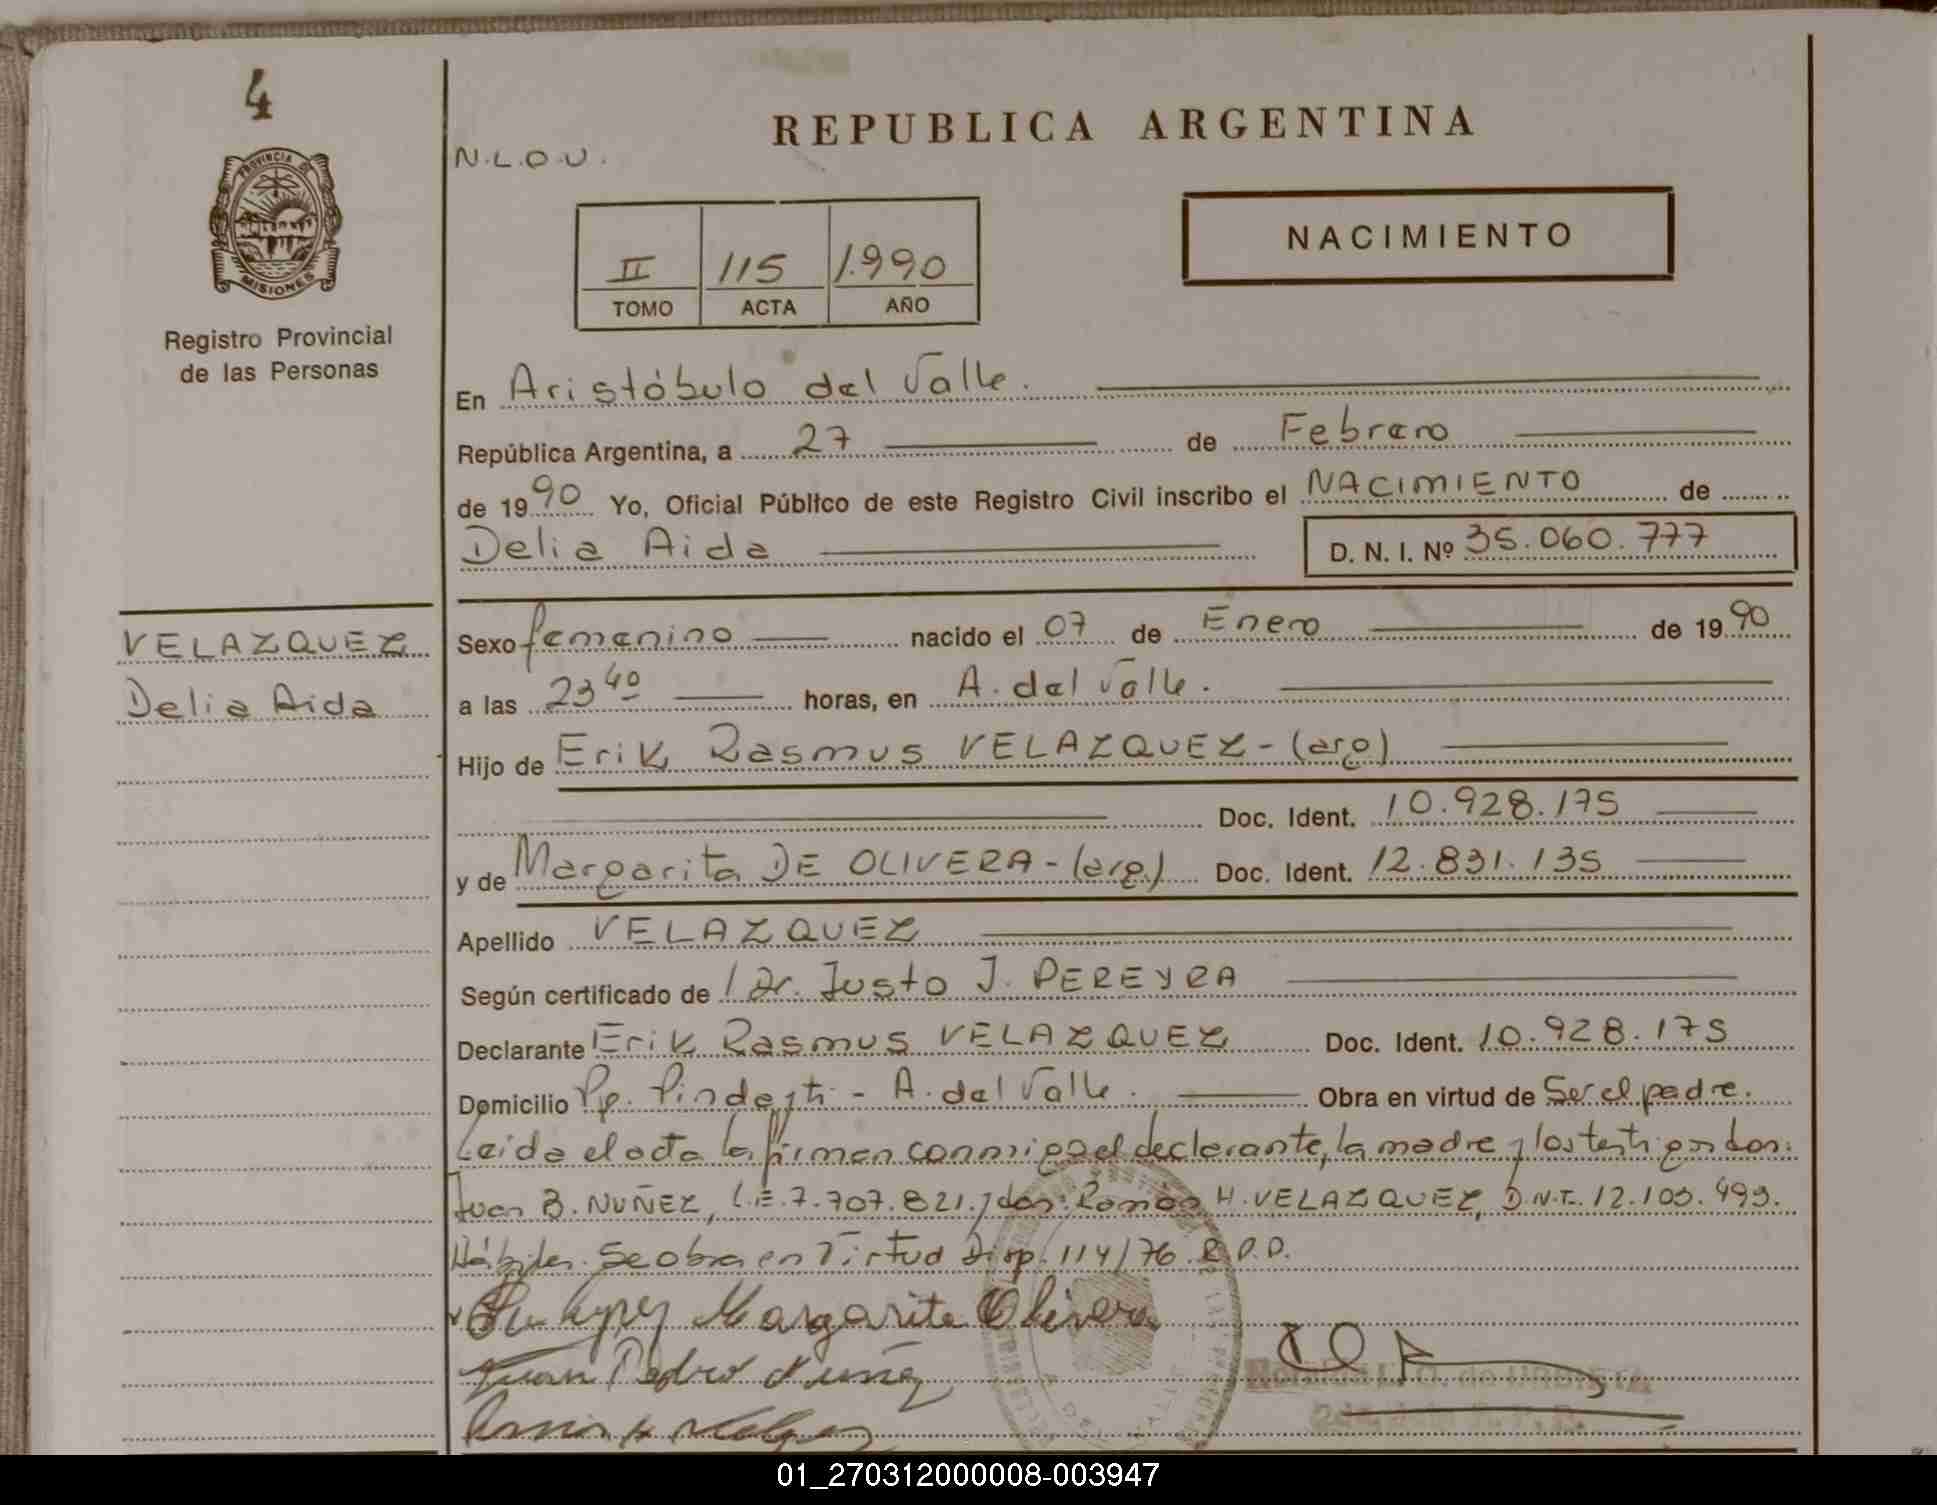 4
PROVINCIA DE
MISIONES
Registro Provincial
de las Personas
VELAZQUEZ
Delia Aida
REPUBLICA ARGENTINA
N.L.O.U.
II 115 1.990
TOMO ACTA AÑO
NACIMIENTO
En Aristóbulo del Valle.
República Argentina, a 27 de Febrero
de 1990 Yo, Oficial Público de este Registro Civil inscribo el NACIMIENTO de
Delia Aida D. N. I. Nº 35.060.777
Sexo femenino nacido el 07 de Enero de 1990
a las 23 40 horas, en A. del Valle.
Hijo de Erik Rasmus VELAZQUEZ - (arg)
Doc. Ident. 10.928.175
y de Margarita DE OLIVERA - (arg.) Doc. Ident. 12.831.135
Apellido VELAZQUEZ
Según certificado de / Dr. Justo J. PEREYRA
Declarante Erik Rasmus VELAZQUEZ Doc. Ident. 10.928.175
Domicilio A. del Valle. Obra en virtud de Ser el padre.
Leida el acta la firman conmigo el declarante, la madre y los testigos don:
Juan B. NUÑEZ, L.E. 7.707.821. y don: Ramón H. VELAZQUEZ, D.N.I. 12.103.493.
Hábiles. Se obra en Virtud Disp. 114/76. R.P.P.
Margarita Olivera
Juan Pedro Nuñez
01_270312000008-003947